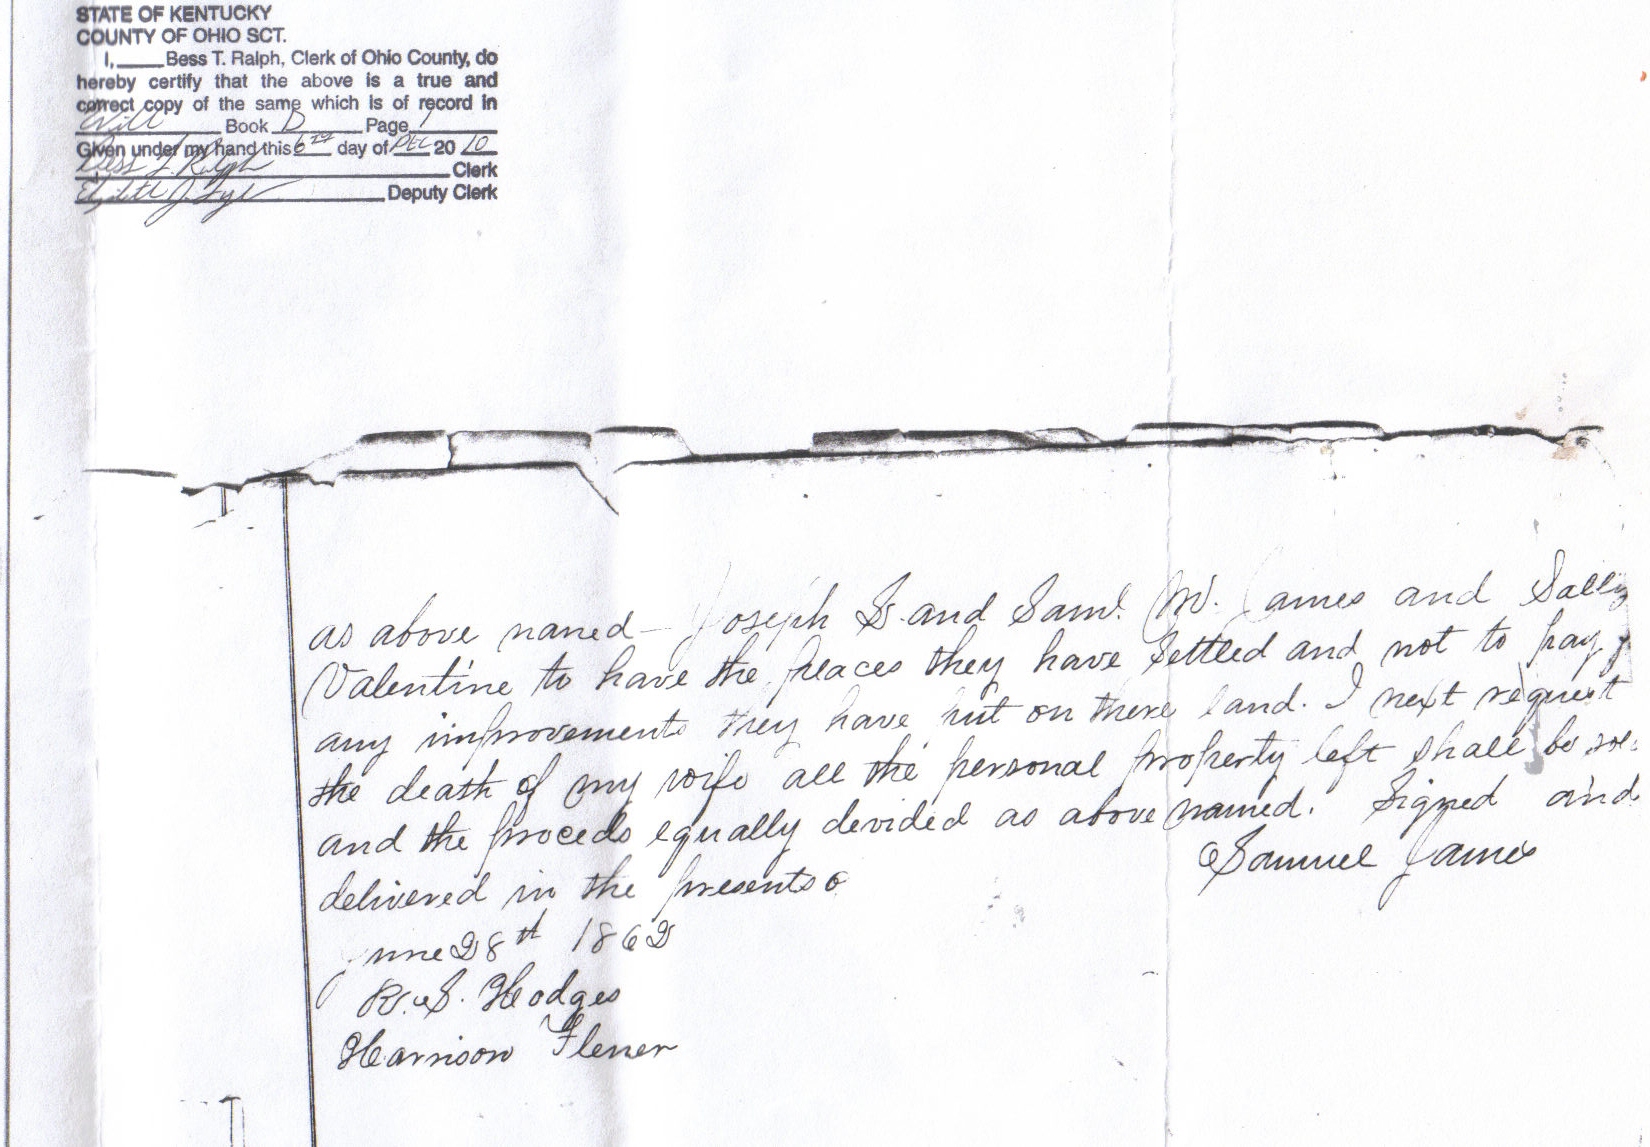 STATE OF KENTUCKY
COUNTY OF OHIO SCT.
I, ____ Bess T. Ralph, Clerk of Ohio County, do
hereby certify that the above is a true and
correct copy of the same which is of record in
Will Book D Page 1
Given under my hand this 6th day of DEC 20 10
Bess T. Ralph Clerk
Deputy Clerk
as above named — Joseph S. and Saml. W. James and Sally
Valentine to have the places they have settled and not to pay
any improvements they have put on there land. I next request
the death of my wife all the personal property left shall be
and the proceds equally devided as above named. Signed and
delivered in the presents o
Samuel James
June 28th 1862
R. S. Hodges
Harrison Flener